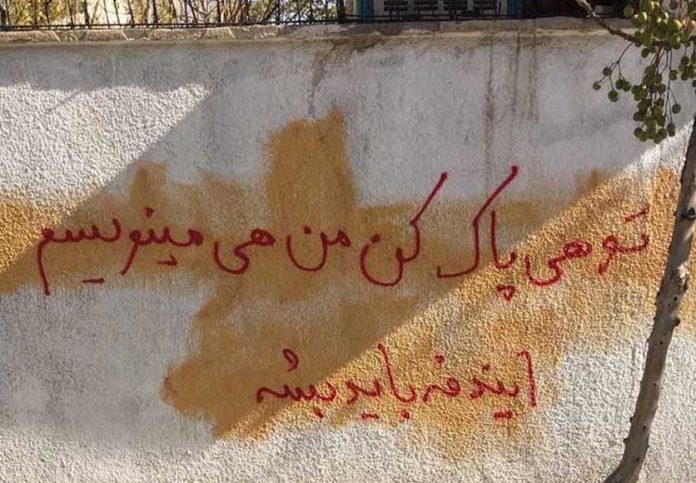 تو هی پاک کن من هی مینویسم
ایندفه باید بشه